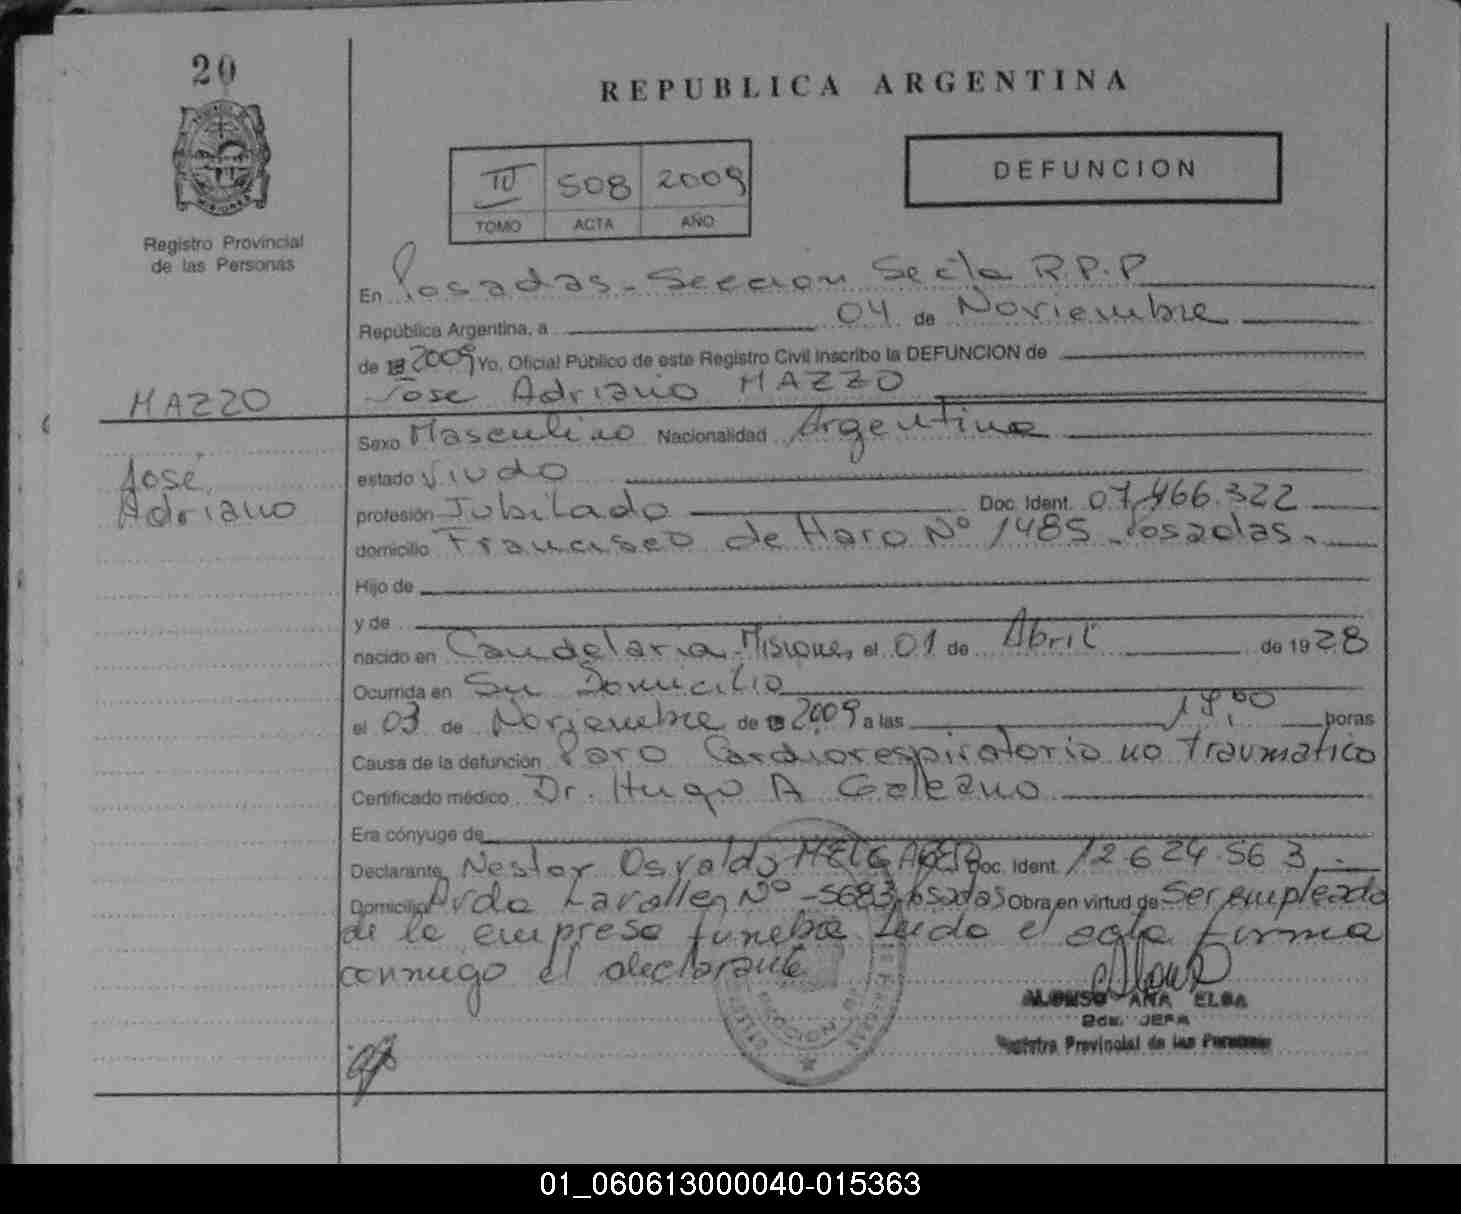 20
REPUBLICA ARGENTINA
DEFUNCION
508 2009
TOMO ACTA AÑO
Registro Provincial
de las Personas
En Posadas - Seccion Sexta R.P.P
República Argentina, a 04 de Noviembre
de 19 2009 Yo, Oficial Público de este Registro Civil inscribo la DEFUNCION de
Jose Adriano MAZZO
MAZZO
José
Adriano
Sexo Masculino Nacionalidad Argentina
estado Viudo
profesión Jubilado Doc. Ident. 07.466.322
domicilio Francisco de Haro Nº 1485 - Posadas.
Hijo de
y de
nacido en Candelaria - Misiones el 01 de Abril de 1928
Ocurrida en Su Domicilio
el 03 de Noviembre de 19 2009 a las horas
Causa de la defunción Paro Cardiorespiratorio no traumatico
Certificado médico Dr. Hugo A Galeano
Era cónyuge de
Declarante Nestor Osvaldo Doc. Ident. 12.624.563
Domicilio Avda Lavalle Nº 5683 Posadas Obra en virtud de Ser empleado
de la empresa funebre Leida el acta firma
conmigo el declarante
ALONSO ANA ELSA
JEFA
Registro Provincial de las Personas
01_060613000040-015363